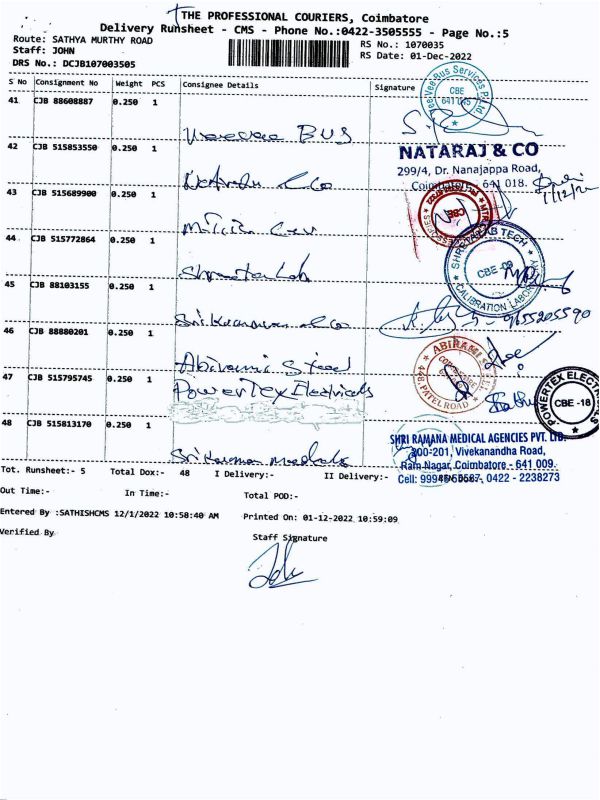 THE PROFESSIONAL COURIERS, Coimbatore
Delivery Runsheet - CMS - Phone No.:0422-3505555 - Page No.:5
Route: SATHYA MURTHY ROAD
RS No.: 1070035
Staff: JOHN
RS Date: 01-Dec-2022
DRS No.: DCJB107003505
S No Consignment No Weight PCS Consignee Details Signature
41 CJB 88608887 0.250 1
CBE
BUS
42 CJB 515853550 0.250 1
NATARAJ & CO
299/4, Dr. Nanajappa Road,
Coimbatore - 641 018.
1/12/22
& Co
43 CJB 515689900 0.250 1
CBE
44 CJB 515772864 0.250 1
SHREYA LAB TECH
CBE-09
CALIBRATION LABORATORY
Lab
45 CJB 88103155 0.250 1
& Co
46 CJB 88880201 0.250 1
ABIRAMI STEEL
448, PATEL ROAD
Abirami Steel
47 CJB 515795745 0.250 1
PowerTex Electricals
POWERTEX ELECTRICALS
CBE -18
48 CJB 515813170 0.250 1
SHRI RAMANA MEDICAL AGENCIES PVT. LTD.
200-201, Vivekanandha Road,
Ram Nagar, Coimbatore - 641 009.
0422 - 2238273
Tot. Runsheet:- 5 Total Dox:- 48 I Delivery:- II Delivery:-
Out Time:- In Time:- Total POD:-
Entered By :SATHISHCMS 12/1/2022 10:58:40 AM Printed On: 01-12-2022 10:59:09
Verified By Staff Signature